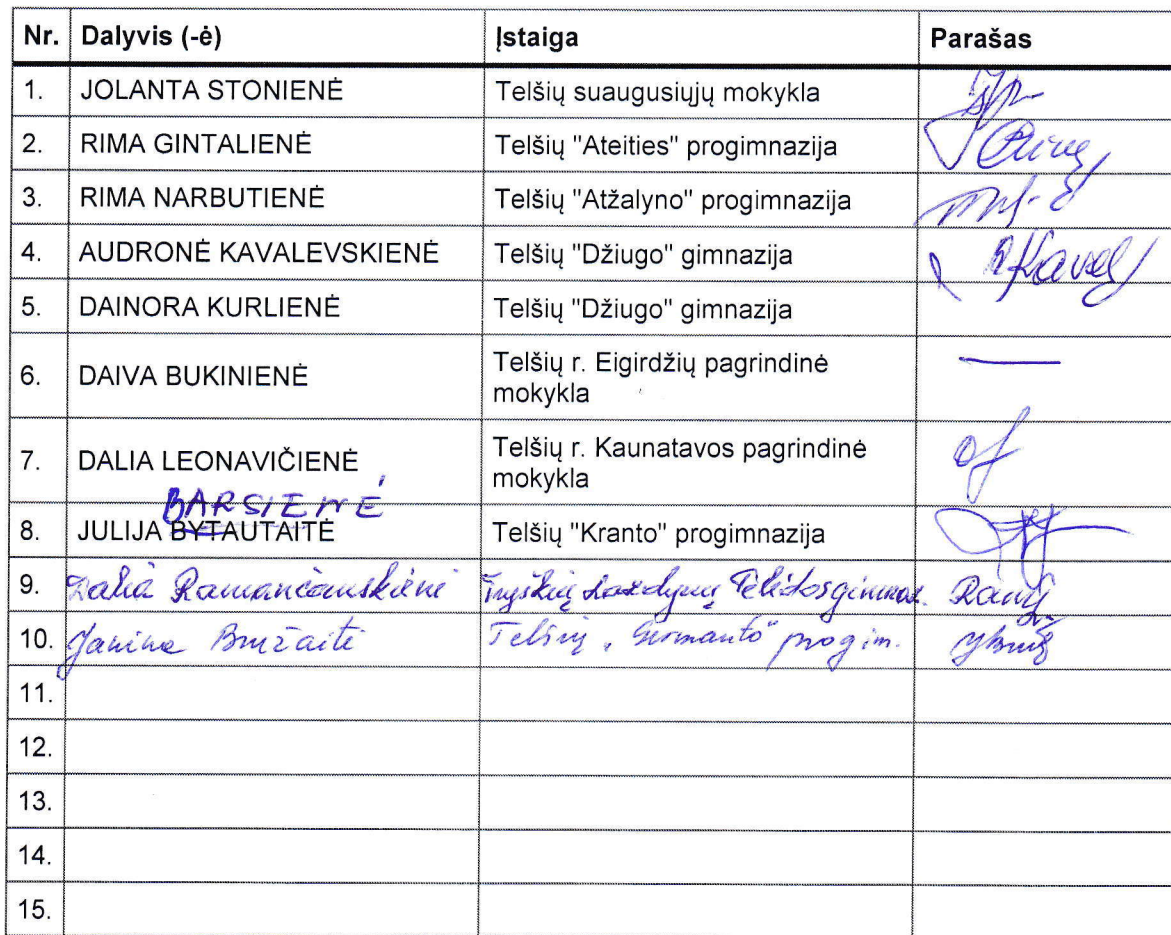 Nr. Dalyvis (-ė) Įstaiga Parašas
1. JOLANTA STONIENĖ Telšių suaugusiųjų mokykla
2. RIMA GINTALIENĖ Telšių "Ateities" progimnazija
3. RIMA NARBUTIENĖ Telšių "Atžalyno" progimnazija
4. AUDRONĖ KAVALEVSKIENĖ Telšių "Džiugo" gimnazija
5. DAINORA KURLIENĖ Telšių "Džiugo" gimnazija
6. DAIVA BUKINIENĖ Telšių r. Eigirdžių pagrindinė
mokykla
7. DALIA LEONAVIČIENĖ Telšių r. Kaunatavos pagrindinė
mokykla
BARSIENĖ
8. JULIJA BYTAUTAITĖ Telšių "Kranto" progimnazija
9. Dalia
10. Janina Telšių „Germanto" progim.
11.
12.
13.
14.
15.